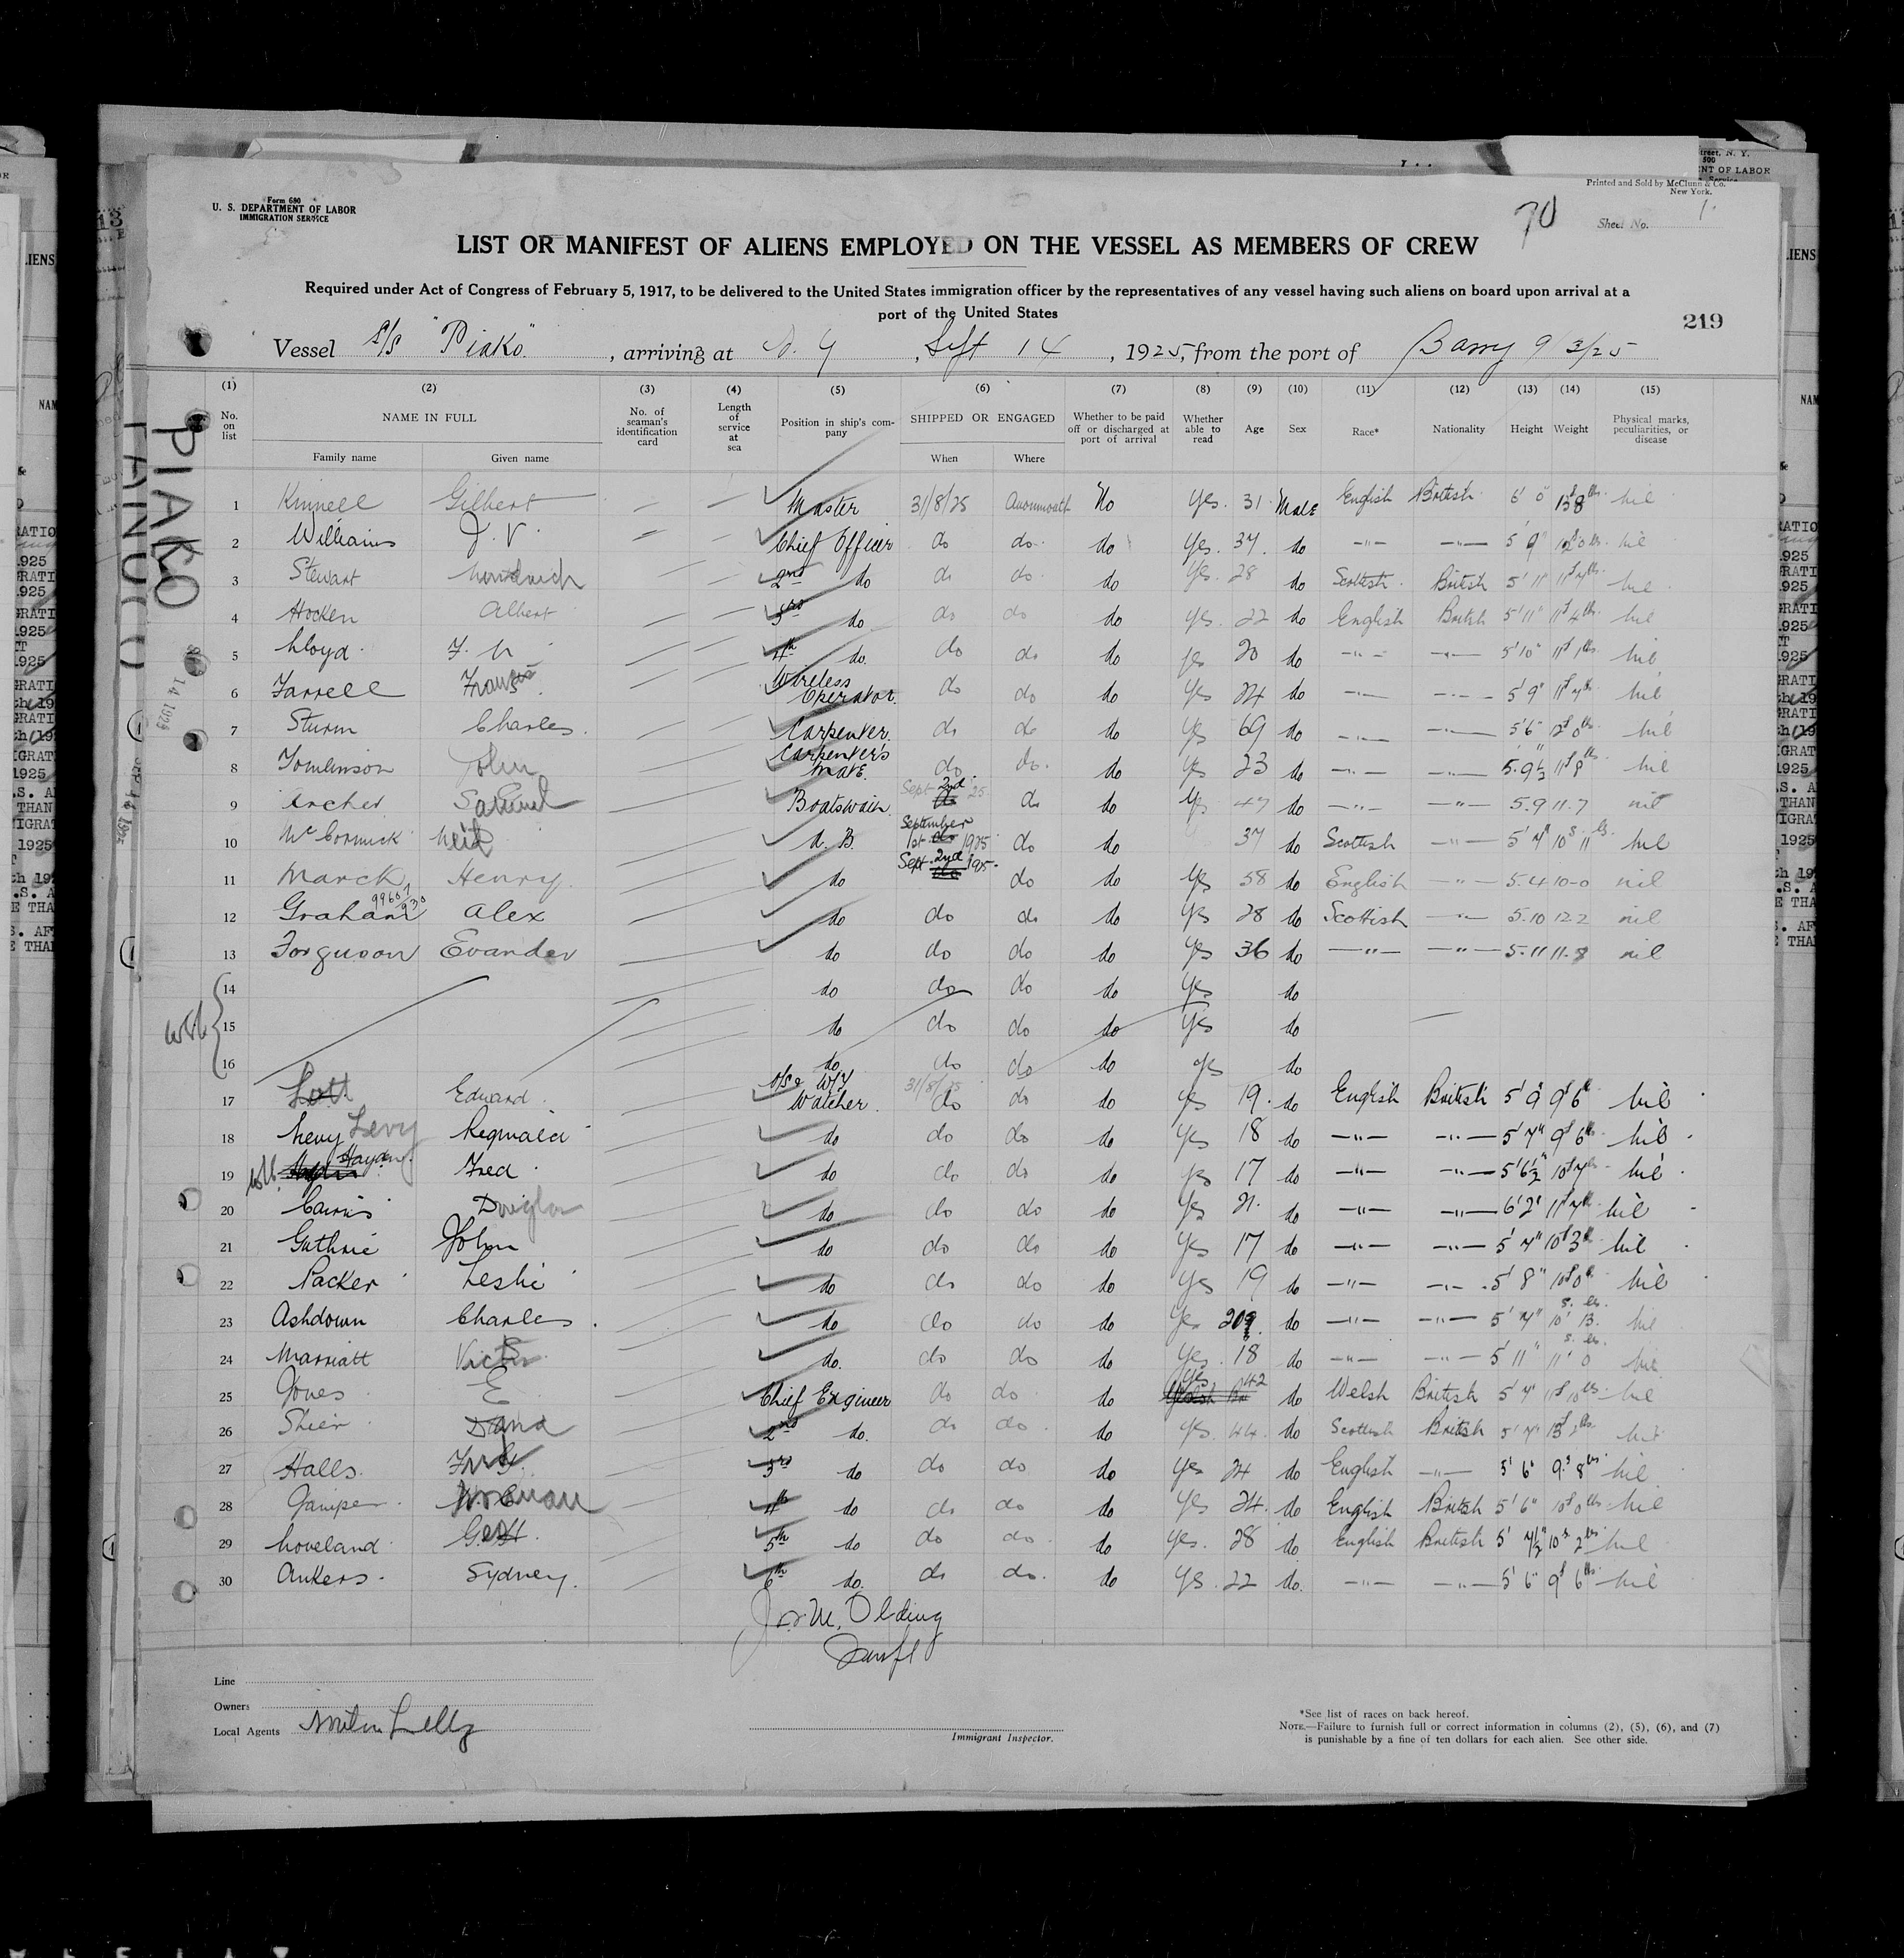 Form 680
U. S. DEPARTMENT OF LABOR
IMMIGRATION SERVICE
Printed and Sold by McClunn & Co.
New York.
70
Sheet No. 1
LIST OR MANIFEST OF ALIENS EMPLOYED ON THE VESSEL AS MEMBERS OF CREW
Required under Act of Congress of February 5, 1917, to be delivered to the United States immigration officer by the representatives of any vessel having such aliens on board upon arrival at a
port of the United States
219
Vessel S/S "Piako" , arriving at N. Y , Sept 14 , 1925, from the port of Barry 9/3/25
(1) (2) (3) (4) (5) (6) (7) (8) (9) (10) (11) (12) (13) (14) (15)
No. on list NAME IN FULL Family name Given name No. of seaman's identification card Length of service at sea Position in ship's company SHIPPED OR ENGAGED When Where Whether to be paid off or discharged at port of arrival Whether able to read Age Sex Race* Nationality Height Weight Physical marks, peculiarities, or disease
PIAKO
1 Kinnell Gilbert — — Master 31/8/25 Avonmouth No Yes. 31 Male English British 6' 0" nil
2 Williams J. V. — — Chief Officer do do do Yes. 37. do —"— —"— 5' 9" nil
3 Stewart 2nd do do do do Yes. 28 do Scottish British 5' 11" 11s 7lbs nil
4 Hocken Albert 3rd do do do do Yes. 22 do English British 5' 11" 11s 4lbs nil
5 Lloyd 4th do. do do do yes 20 do —"— —"— 5' 10" 11s 1lbs nil
6 Farrell Francis Wireless Operator. do do do Yes 24 do —"— —"— 5' 9" 11s 7lbs nil
7 Sturm Charles Carpenter. do do do Yes 69 do —"— —"— 5' 6" 12s 0lbs nil
8 Tomlinson John Carpenter's mate. do do. do Yes 23 do —"— —"— 5. 9½" 11s 8lbs nil
9 Archer Samuel Boatswain. Sept 2nd 25 do do Yes 47 do —"— —"— 5.9 11.7 nil
10 McCormick Neil A. B. September 1st 1925 do do 37 do Scottish —"— 5' 7" 10s 11lbs nil
11 Marck Henry. do Sept. 2nd 1925 do do Yes 58 do English —"— 5.4 10-0 nil
12 Graham Alex do do do do Yes 28 do Scottish —"— 5.10 12.2 nil
13 Forguson Evander do do do do Yes 36 do —"— —"— 5.11 11.8 nil
14 do do do do Yes do
15 do do do do Yes do
16 do do do do yes do
17 Lott Edward. Watcher. 31/8/25 do do do yes 19. do English British 5' 9" 9s 6lb nil
18 Levy Levy Reginald do do do do Yes 18 do —"— —"— 5' 7" 9s 6lb nil
19 Hayden Fred do do do do yes 17 do —"— —"— 5' 6½" 10s 7lbs nil
20 Cairns Douglas do do do do Yes 21. do —"— —"— 6' 2" 11s 7lb nil
21 Guthrie John do do do do Yes 17 do —"— —"— 5' 7" 10s 3lb nil
22 Packer Leslie do do do do Yes 19 do —"— —"— 5' 8" 10s 0lb nil
23 Ashdown Charles. do do do do Yes do —"— —"— 5' 7" 10s 13lbs nil
24 Marriatt Victor do. do do do Yes. 18 do —"— —"— 5' 11" 11s 0lbs nil
25 Jones E Chief Engineer do do do Yes 42 do Welsh British 5' 7" 11s 10lbs nil
26 2nd do. do do do Yes. 44. do Scottish British 5' 7" 13s 2lbs nil
27 Halls. 3rd do do do do Yes 24 do English —"— 5' 6" 9s 8lbs nil
28 Norman 4th do do do do Yes 24. do English British 5' 6" 10s 0lbs nil
29 Loveland 5th do do do do Yes. 28 do English British 5' 7½" 10s 2lbs nil
30 Ankers. Sydney. 6th do. do do. do Yes. 22 do. —"— —"— 5' 6" 9s 6lbs nil
Olding
Line
Owners
Local Agents
Immigrant Inspector.
*See list of races on back hereof.
NOTE.—Failure to furnish full or correct information in columns (2), (5), (6), and (7)
is punishable by a fine of ten dollars for each alien. See other side.